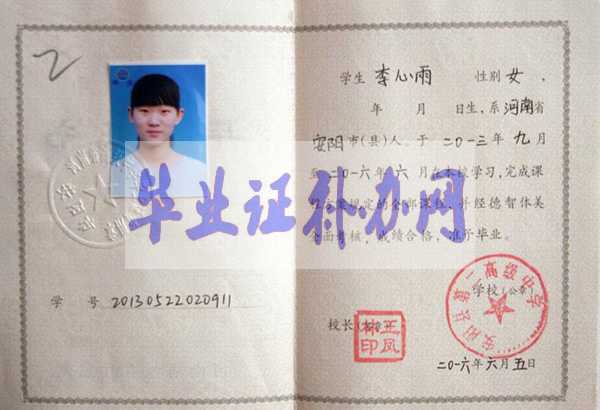 2
学生 李心雨 性别 女 、
年 月 日生，系 河南 省
安阳 市(县)人。于 二〇一三 年 九 月
至 二〇一六 年 六 月在本校学习，完成课
规定的全部课程，并经德智体美
全面考核，成绩合格，准予毕业。
毕业证补办网
学 号 20130522020911
学校（公章）
安阳县第一高级中学
校长
王凤
林印
二〇一六 年 六 月 五 日